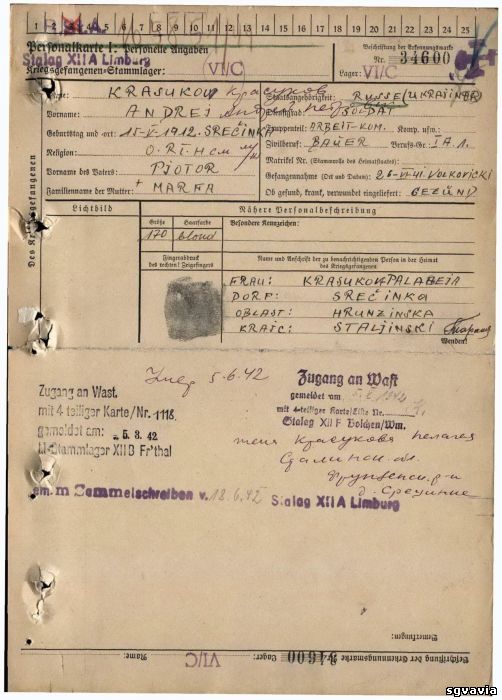 1 2 3 4 5 6 7 8 9 10 11 12 13 14 15 16 17 18 19 20 21 22 23 24 25
Personalkarte I: Personelle Angaben
Beschriftung der Erkennungsmarke
Stalag XII A Limburg
Nr. 34600
Kriegsgefangenen-Stammlager: VI/C
Lager: VI/C
Des Kriegsgefangenen
Name: KRASUKOW Красуков
Staatsangehörigkeit: RUSSE (UKRAJINER)
Vorname: ANDREJ
Dienstgrad: SOLDAT
Truppenteil: ARBEIT-KOM. Komp. usw.:
Geburtstag und -ort: 15-V-1912. SREČINKA
Zivilberuf: BAUER Berufs-Gr.: I A. 1.
Religion:
Matrikel Nr. (Stammrolle des Heimatstaates):
Vorname des Vaters: PJOTOR
Gefangennahme (Ort und Datum): 26-VI-41. VOLKOVICKI
Familienname der Mutter: + MARFA
Ob gesund, krank, verwundet eingeliefert: GEZÜND
Lichtbild
Nähere Personalbeschreibung
Größe Haarfarbe Besondere Kennzeichen:
170 blond
Fingerabdruck des rechten! Zeigefingers
Name und Anschrift der zu benachrichtigenden Person in der Heimat des Kriegsgefangenen
FRAU: KRASUKOW PALAGEIA
DORF: SREČINKA
OBLAST: HRUNZINSKA
KRAIC: STALJINSKI
Wenden!
5.6.42
Zugang an Wast.
mit 4 teiliger Karte/Nr. 1118
gemeldet am: - 5. 3. 42
M-Stammlager XII B Fr'thal
Zugang an Wast
gemeldet am
mit 4-teiliger Karte/Liste Nr.
Stalag XII F Bolchen/Wm.
жена Красукова Пелагея
Сталинск. обл.
р-н
д.
m Sammelschreiben v. 18.6.42 Stalag XII A Limburg
Bemerkungen:
Beschriftung der Erkennungsmarke Nr. 34600 Lager: VI/C Name:
sgvavia